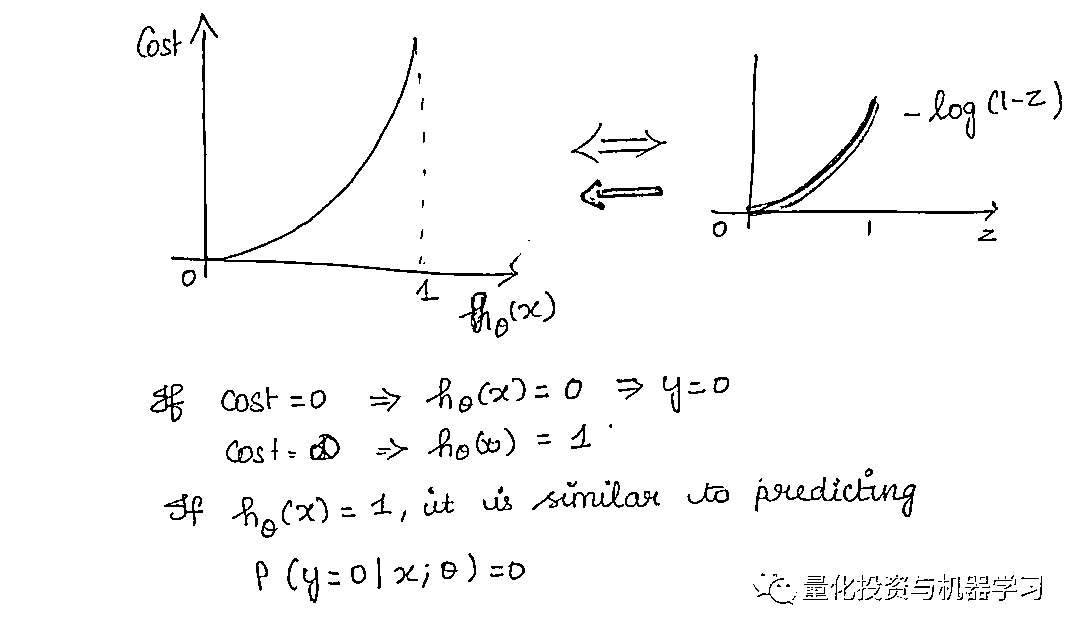 Cost
0
1
hθ(x)
⇔
⇐
- log (1-z)
0
1
z
If cost = 0 ⇒ hθ(x) = 0 ⇒ y = 0
cost = ⇒ hθ(x) = 1
If hθ(x) = 1, it is similar to predicting
P (y=0 | x; θ) = 0
量化投资与机器学习